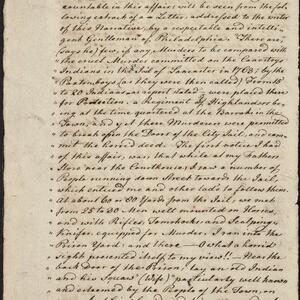 countable in this affair will be seen from the fol-
lowing extract of a Letter, addressed to the writer
of this Narrative, by a respectable and intelli-
gent Gentleman of Philadelphia. "There are
(says he) few, if any Murders to be compared with
the cruel Murder committed on the Conestoga
Indians in the of Lancaster in 1763, by the
Paxtonboys (as they were then called) From 15
to 20 Indians, as report stated were placed there
for Protection, a Regiment of Highlanders be-
ing at the time quartered at the Barracks in the
Town, and yet these Murderers were permitted
to break open the Doors of the City Jail, and com-
mit the horrid deed. The first notice I had
of this affair, was, that while at my Fathers
Store near the Courthouse, I saw a number of
People running down Street towards the Jail,
which enticed me and other lads to follow them.
At about 60 or 80 Yards from the Jail, we met
from 25 to 30 Men well mounted on Horses,
and with Rifles, Tomahawks, and Scalping
Knifes, equipped for Murder. I ran into the
Prison Yard and there — O what a horrid
sight presented itself to my view!! — Near the
back Door of the Prison, lay an old Indian
and his Squaw (Wife) particularly well known
and esteemed by the People of the Town, on